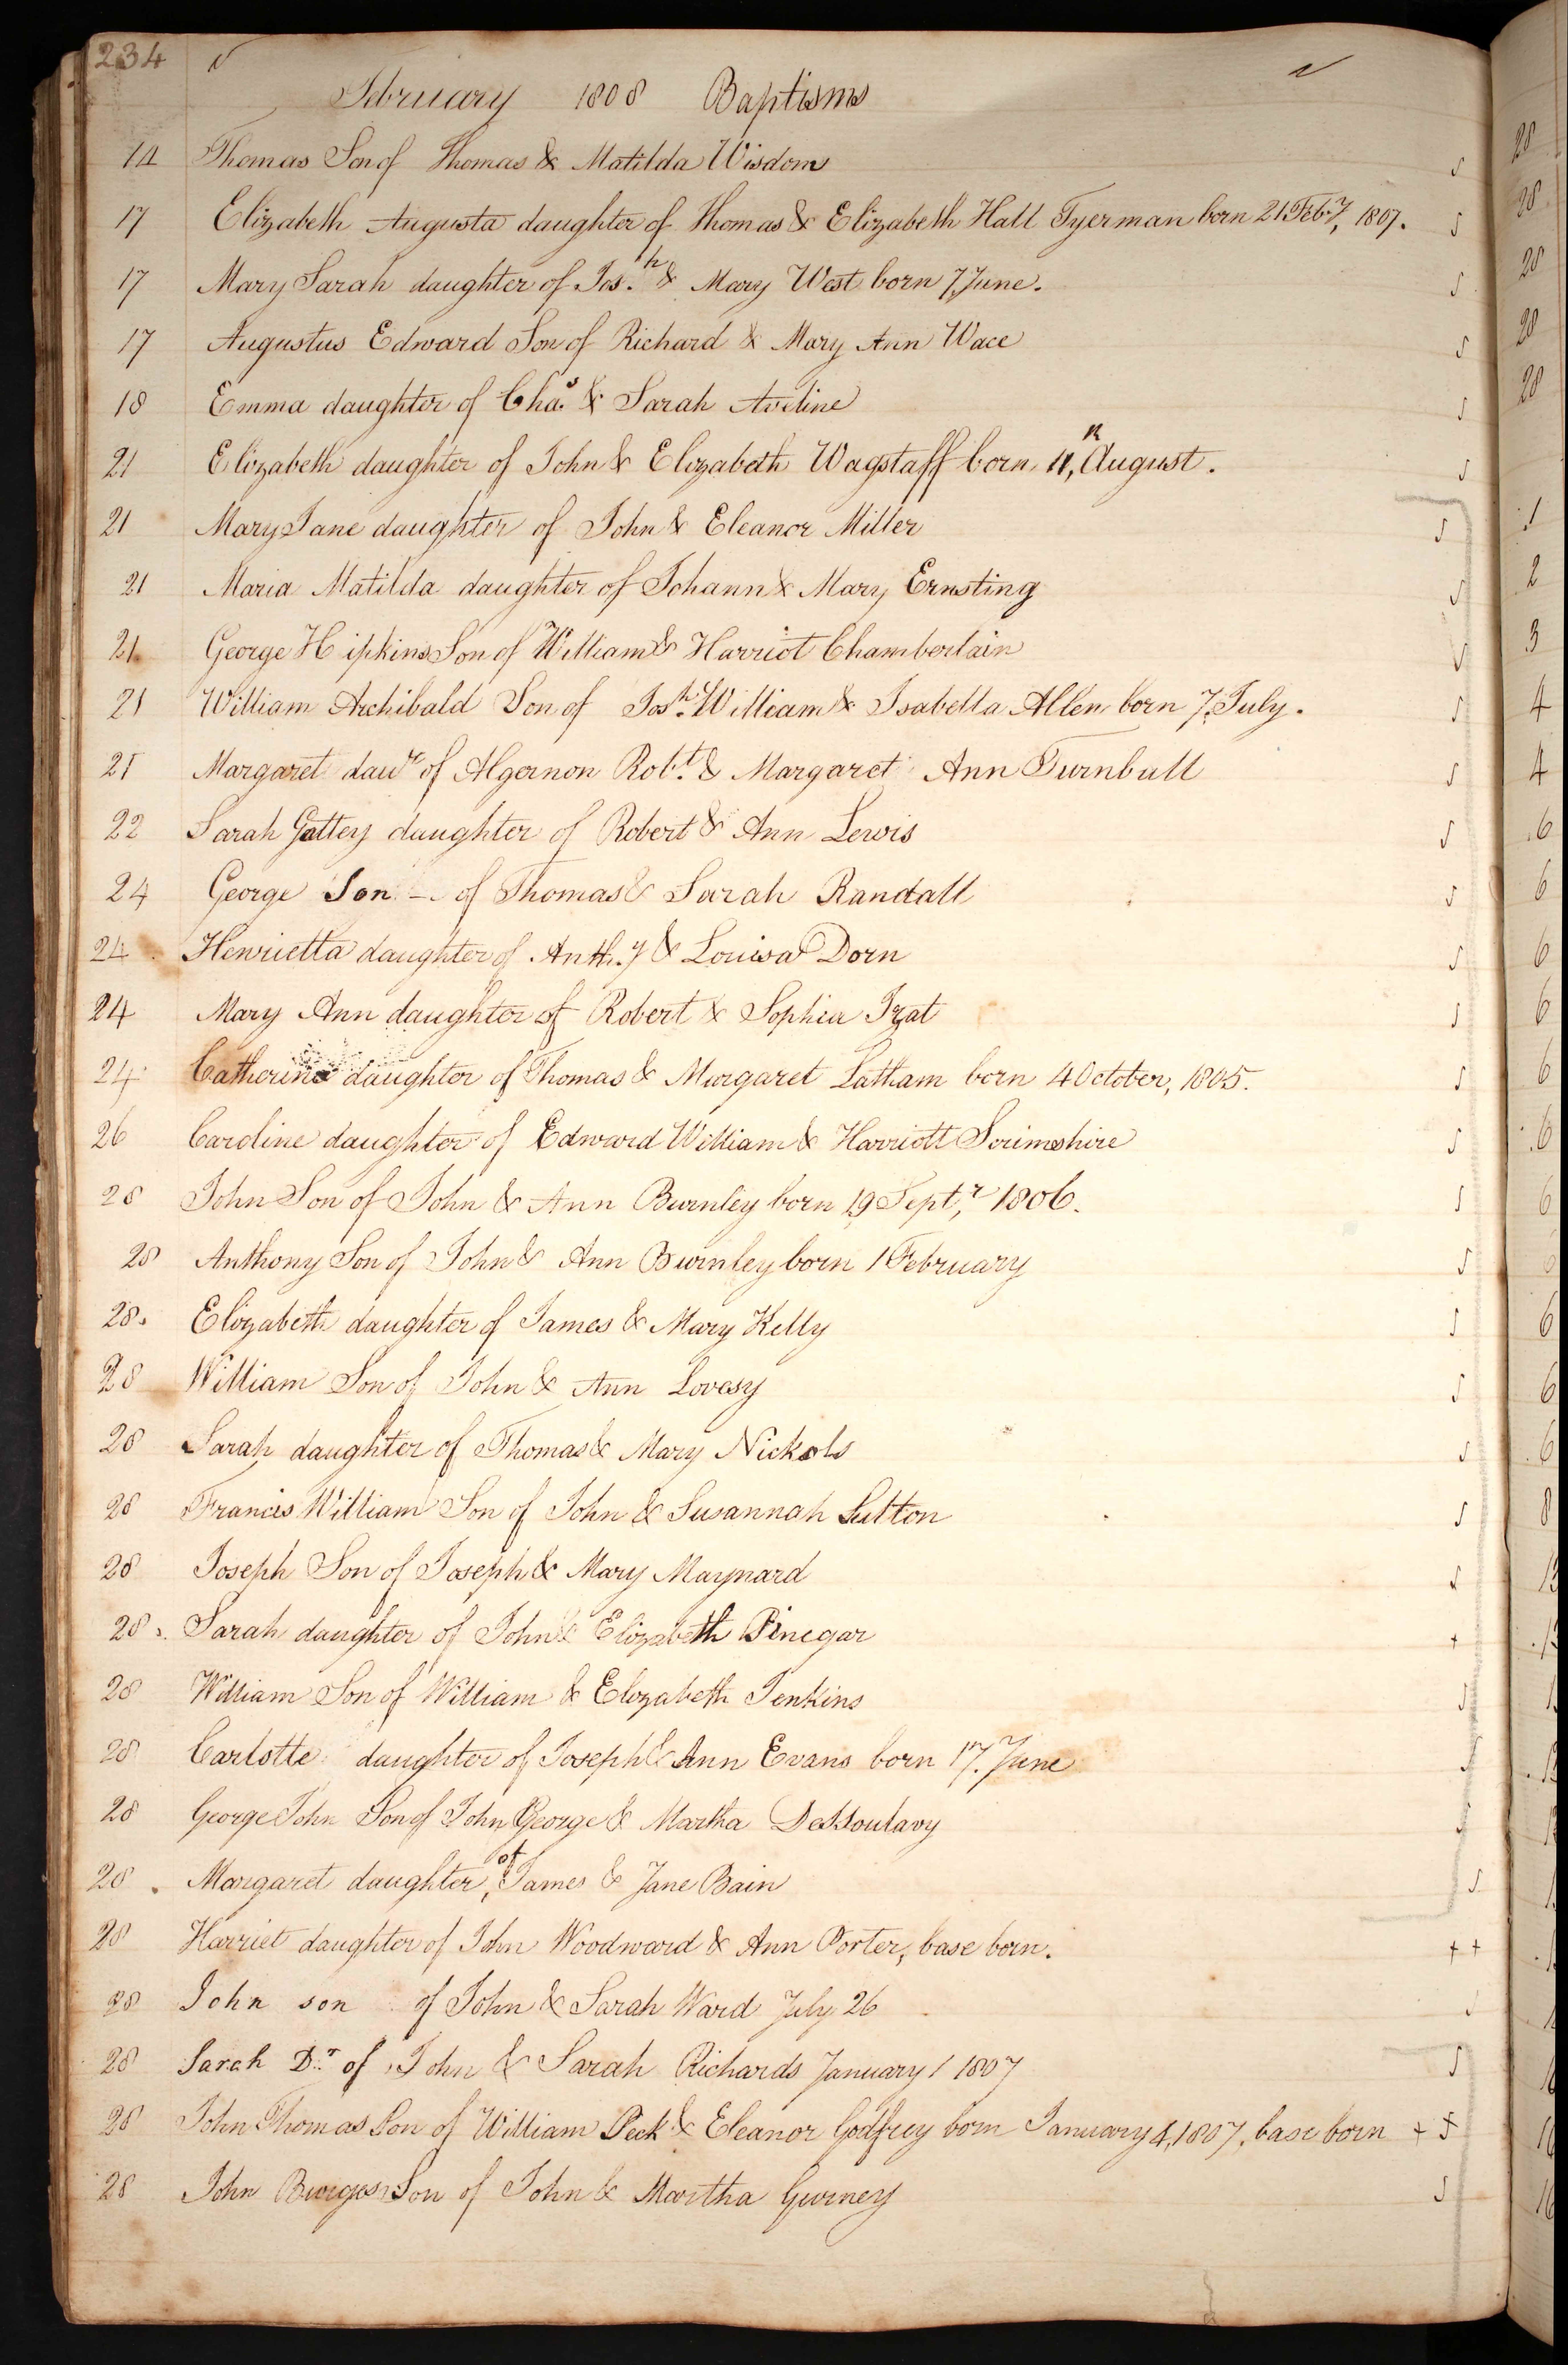 234
February 1808 Baptisms
14 Thomas Son of Thomas & Matilda Wisdom
17 Elizabeth Augusta daughter of Thomas & Elizabeth Hall Tyerman born 21 Feb.y, 1807.
17 Mary Sarah daughter of Jos.h & Mary West born 7, June.
17 Augustus Edward Son of Richard & Mary Ann Wace
18 Emma daughter of Cha.s & Sarah Aveline
21 Elizabeth daughter of John & Elizabeth Wagstaff born 11, August.
21 Mary Jane daughter of John & Eleanor Miller
21 Maria Matilda daughter of Johann & Mary Ernsting
21 George Hipkins Son of William & Harriot Chamberlain
21 William Archibald Son of Jos.h William & Isabella Allen born 7, July.
21 Margaret daur of Algernon Rob.t & Margaret Ann Turnbull
22 Sarah Gattey daughter of Robert & Ann Lewis
24 George Son - of Thomas & Sarah Randall
24 Henrietta daughter of Anth.y & Louisa Dorn
24 Mary Ann daughter of Robert & Sophia Izat
24 Catherine daughter of Thomas & Margaret Latham born 4 October, 1805.
26 Caroline daughter of Edward William & Harriott Scrimshire
28 John Son of John & Ann Burnley born 19 Sept,r 1806.
28 Anthony Son of John & Ann Burnley born 1 February
28. Elizabeth daughter of James & Mary Kelly
28 William Son of John & Ann Lovesy
28 Sarah daughter of Thomas & Mary Nickols
28 Francis William Son of John & Susannah Sutton
28 Joseph Son of Joseph & Mary Maynard
28. Sarah daughter of John & Elizabeth Pinegar
28 William Son of William & Elizabeth Jenkins
28 Carlotte daughter of Joseph & Ann Evans born 17. June
28 George John Son of John George & Martha DesSoulavy
28. Margaret daughter, of James & Jane Bain
28 Harriet daughter of John Woodward & Ann Porter, base born. + +
28 John son of John & Sarah Ward July 26
28 Sarah D.r of John & Sarah Richards January 1 1807
28 John Thomas Son of William Peck & Eleanor Godfrey born January 4, 1807, base born +
28 John Burges Son of John & Martha Gurney